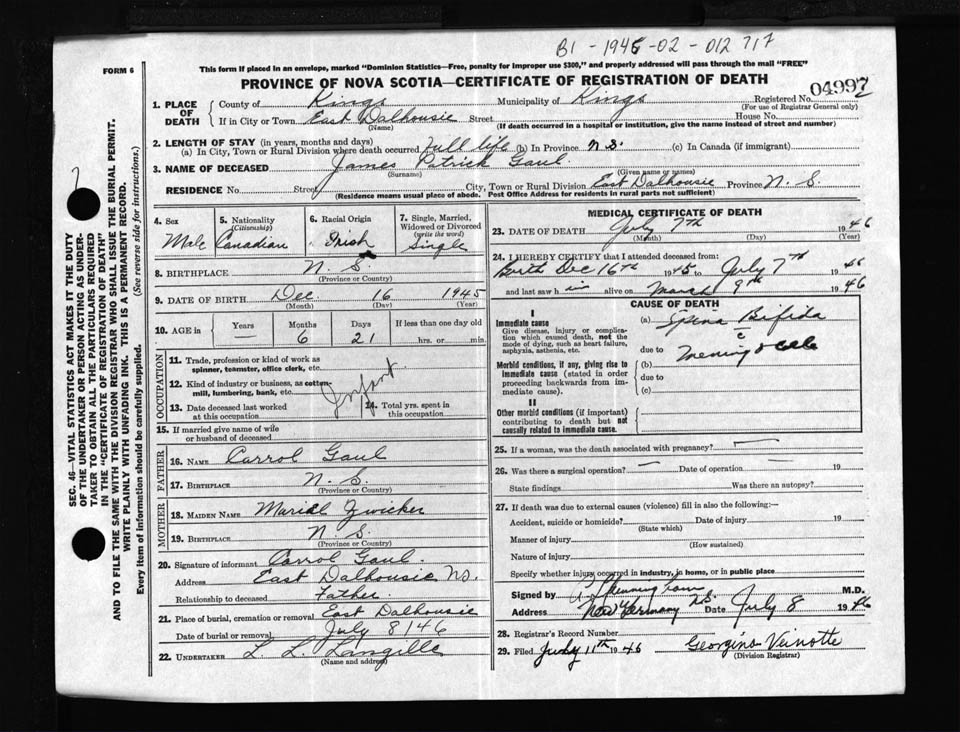 B1 - 1945-02 - 012 717
FORM 6
This form if placed in an envelope, marked "Dominion Statistics—Free, penalty for improper use $300," and properly addressed will pass through the mail "FREE"
PROVINCE OF NOVA SCOTIA—CERTIFICATE OF REGISTRATION OF DEATH
04997
1. PLACE OF DEATH
County of Kings Municipality of Kings Registered No.
(For use of Registrar General only)
If in City or Town East Dalhousie Street House No.
(Name) (If death occurred in a hospital or institution, give the name instead of street and number)
2. LENGTH OF STAY (in years, months and days)
(a) In City, Town or Rural Division where death occurred Full life (b) In Province N.S. (c) In Canada (if immigrant)
3. NAME OF DECEASED James Patrick Gaul
(Surname) (Given name or names)
RESIDENCE No. Street City, Town or Rural Division East Dalhousie Province N. S.
(Residence means usual place of abode. Post Office Address for residents in rural parts not sufficient)
4. Sex Male
5. Nationality (Citizenship) Canadian
6. Racial Origin Irish
7. Single, Married, Widowed or Divorced (write the word) Single
8. BIRTHPLACE N. S.
(Province or Country)
9. DATE OF BIRTH Dec. 16 1945
(Month) (Day) (Year)
10. AGE in Years — Months 6 Days 21 If less than one day old
hrs. or min.
OCCUPATION
11. Trade, profession or kind of work as spinner, teamster, office clerk, etc.
12. Kind of industry or business, as cotton mill, lumbering, bank, etc.
Infant
13. Date deceased last worked at this occupation
14. Total yrs. spent in this occupation
15. If married give name of wife or husband of deceased
FATHER
16. NAME Carrol Gaul
17. BIRTHPLACE N. S.
(Province or Country)
MOTHER
18. MAIDEN NAME Zwicker
19. BIRTHPLACE N. S.
(Province or Country)
20. Signature of informant Carrol Gaul.
Address East Dalhousie N.S.
Relationship to deceased Father.
21. Place of burial, cremation or removal East Dalhousie
Date of burial or removal July 8/46
22. UNDERTAKER L. L. Langille
(Name and address)
MEDICAL CERTIFICATE OF DEATH
23. DATE OF DEATH July 7th 1946
(Month) (Day) (Year)
24. I HEREBY CERTIFY that I attended deceased from:
Birth Dec 16th 1945 to July 7th 1946
and last saw him alive on March 9th 1946
CAUSE OF DEATH
I
Immediate cause
Give disease, injury or complication which caused death, not the mode of dying, such as heart failure, asphyxia, asthenia, etc.
(a) Spina Bifida
c
due to Meningocele
Morbid conditions, if any, giving rise to immediate cause (stated in order proceeding backwards from immediate cause).
(b)
due to
(c)
II
Other morbid conditions (if important) contributing to death but not causally related to immediate cause.
25. If a woman, was the death associated with pregnancy? —
26. Was there a surgical operation? — Date of operation — 19
State findings Was there an autopsy?
27. If death was due to external causes (violence) fill in also the following:—
Accident, suicide or homicide? Date of injury 19
(State which)
Manner of injury
(How sustained)
Nature of injury
Specify whether injury occurred in industry, in home, or in public place
Signed by M.D.
Address New Germany N.S. Date July 8 1946
28. Registrar's Record Number
29. Filed July 11th 1946 Veinotte
(Division Registrar)
SEC. 46—VITAL STATISTICS ACT MAKES IT THE DUTY
OF THE UNDERTAKER OR PERSON ACTING AS UNDER-
TAKER TO OBTAIN ALL THE PARTICULARS REQUIRED
IN THE "CERTIFICATE OF REGISTRATION OF DEATH"
AND TO FILE THE SAME WITH THE DIVISION REGISTRAR WHO SHALL ISSUE THE BURIAL PERMIT.
WRITE PLAINLY WITH UNFADING INK. THIS IS A PERMANENT RECORD.
Every item of information should be carefully supplied. (See reverse side for instructions.)